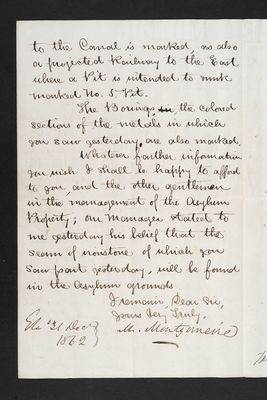 to the Canal is marked, as also
a projected Railway to the East
where a Pit is intended to sunk
marked No. 5 Pit.
The Borings in the colored
sections of the metals in which
you saw yesterday, are also marked.
Whatever further information
you wish I shall be happy to afford
to you and the other gentlemen
in the management of the Asylum
Property; our Manager stated to
me yesterday his belief that the
seam of ironstone of which you
saw part yesterday, will be found
in the Asylum grounds.
I remain, Dear Sir,
Yours Very Truly.
M. Montgomerie
21 Decr
1862